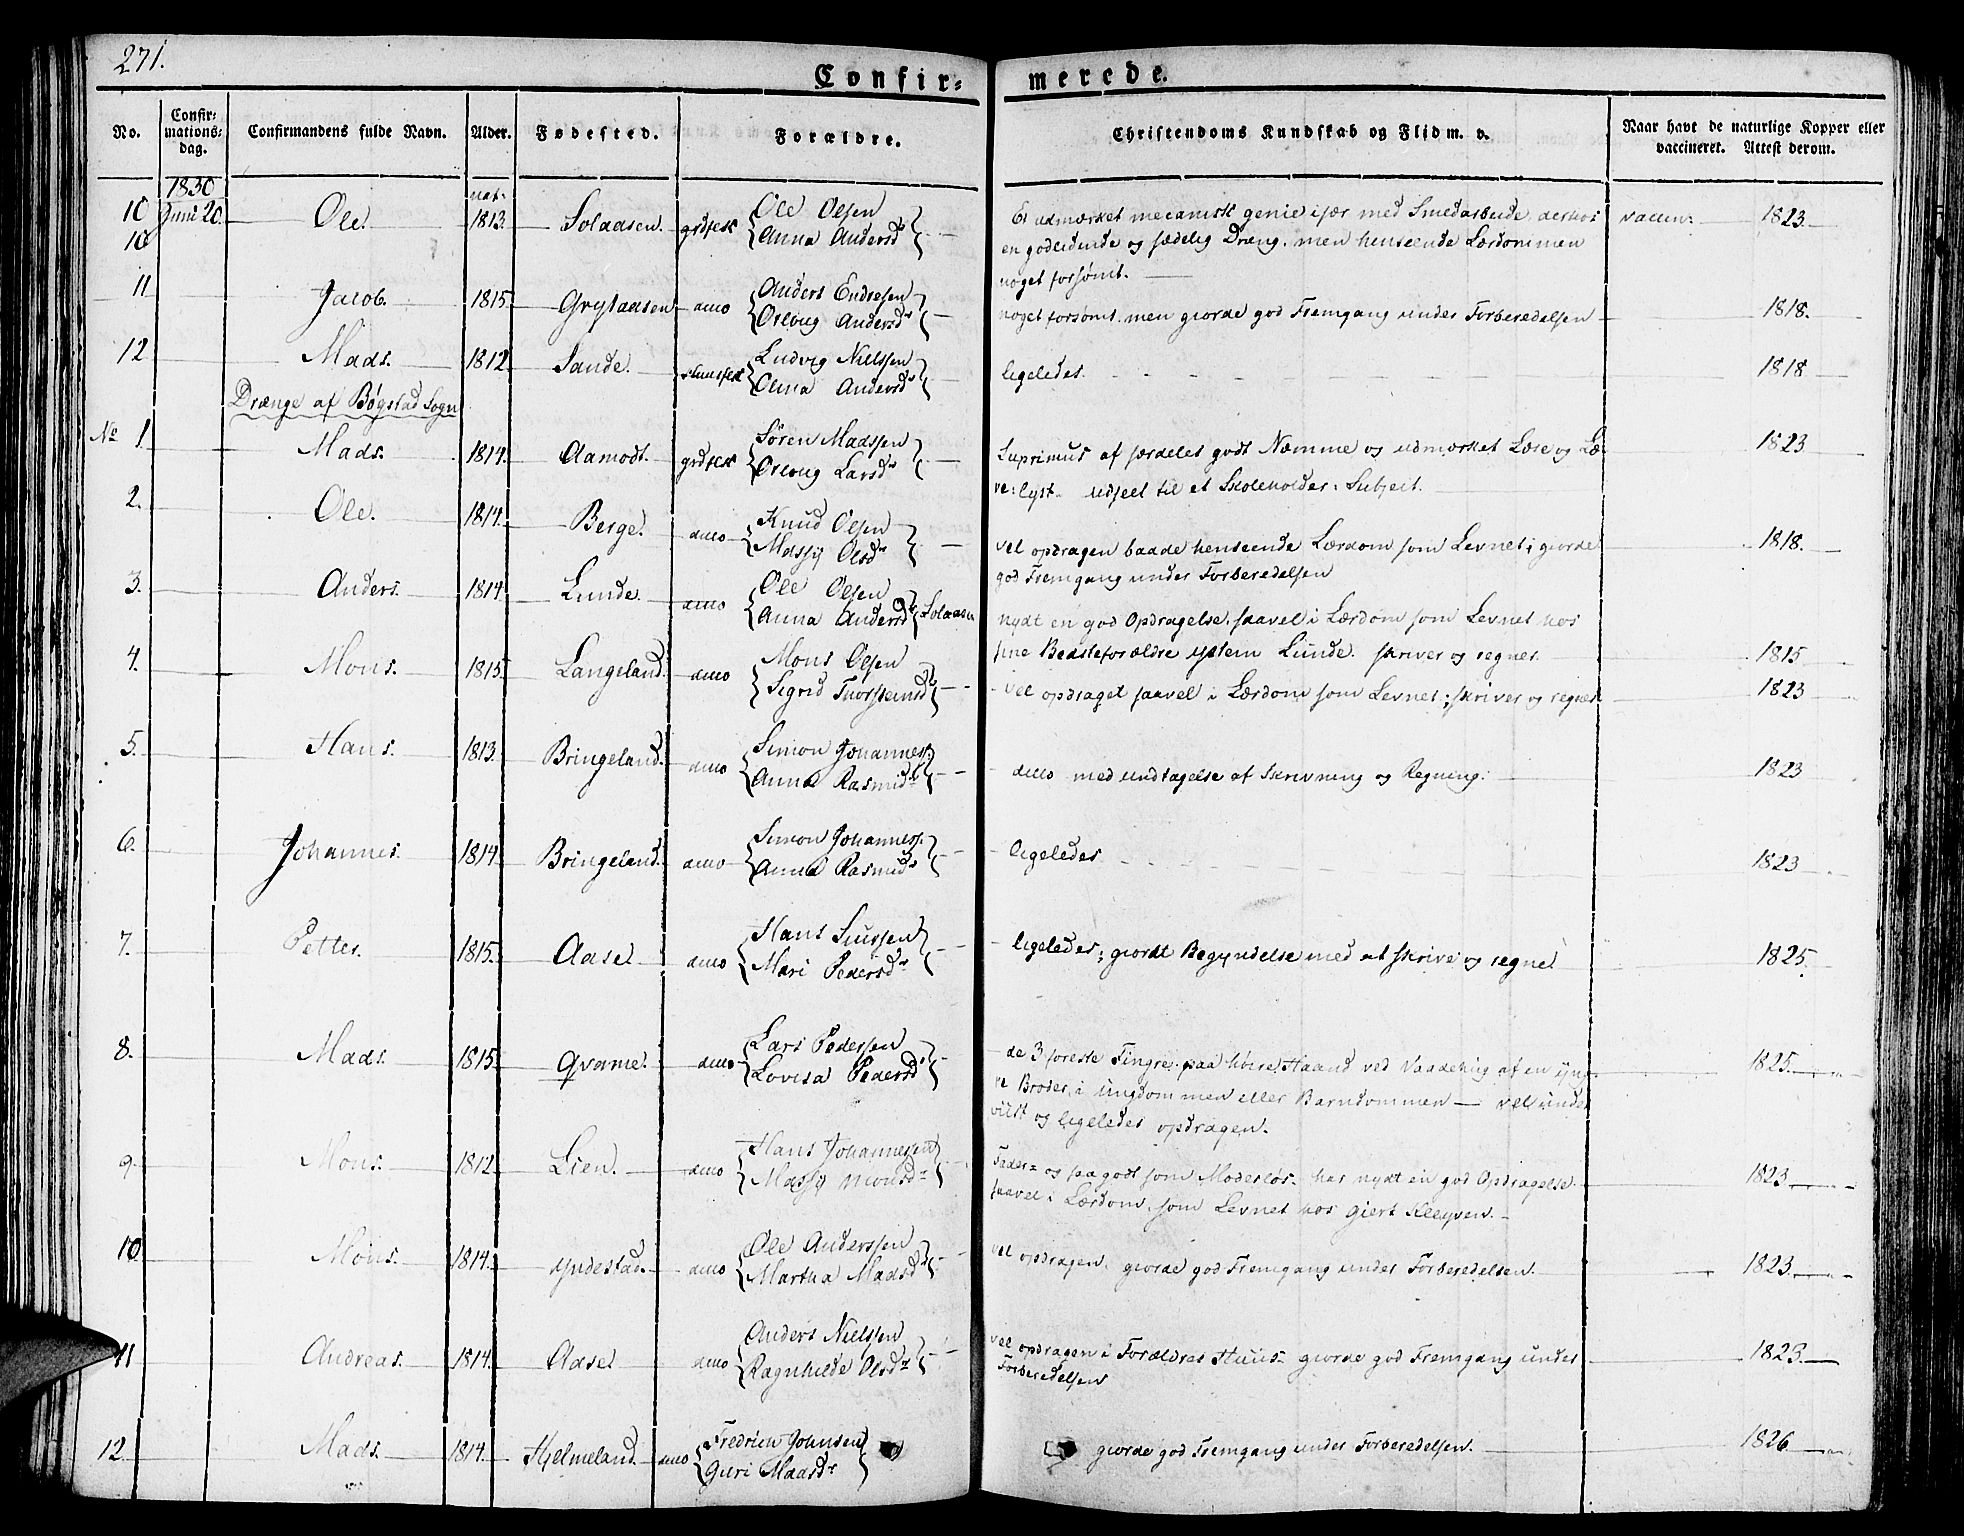 271.
Confir=
merede.
No.
Confir=
mations=
dag.
Confirmandens fulde Navn.
Alder.
Fødested.
Forældre.
Christendoms Kundskab og Flid m. v.
Naar havt de naturlige Kopper eller
vaccineret. Attest derom.
1830
10 Juni 20. Ole. nat: 1813. Solaasen. grdfsk Ole Olsen
10 Anna Andersdr
Et udmærket mecanisk genie især med Smedarbeide, derhos vaccin: 1823
en godlidende og sædelig Dræng, men henseende Lærdommen
noget forsømt.
11 Jacob. 1815 Grytaasen ditto Anders Endresen
Oslaug Andersdr
noget forsømt. men giorde god Fremgang under Forberedelsen 1818.
12 Mads. 1812 Sande. Ludvig Nielssen
Anna Andersdr
ligeledes. 1818
Drænge af Bøgstad Sogn
No 1 Mads. 1814. Aamodt. grdfsk Søren Madssen
Oslaug Larsdr
Suprimus af særdeles godt Næmme og udmærket Læse og Læ- 1823
re: lyst. udseet til et Skoleholder: Subject.
2. Ole. 1814. Berge. ditto Knud Olsen
Massy Olsdr
vel opdragen baade henseende Lærdom som Levnet; giorde 1818.
god Fremgang under Forberedelsen
3. Anders. 1814. Lunde. ditto Ole Olsen
Anna Andersdr Solaasen
nydt en god Opdragelse, saavel i Lærdom som Levnet hos
sine Bedsteforældre Lunde. skriver og regner. 1815
4. Mons. 1815. Langeland. ditto Mons Olsen
Sigrid Thorsteinsdr
vel opdraget saavel i Lærdom som Levnet; skriver og regner. 1823
5. Hans. 1813. Bringeland. ditto Simon Johannes:
Anna Rasmusdr
ditto med undtagelse af Skrivning og Regning. 1823
6. Johannes. 1814. Bringeland. ditto Simon Johanness.
Anna Rasmusdr
ligeledes 1823
7. Petter. 1815. Aase ditto Hans Siurssen
Mari Pedersdr
ligeledes; giordt Begyndelse med at skrive og regne 1825.
8. Mads. 1815. Qvame. ditto Lars Pedersen
Lovisa Pedersdr
de 3 første Fingre paa høire Haand ved Vaadehug af en yng- 1825.
re Broder, i Ungdommen eller Barndommen — vel under
viist og ligeledes opdragen.
9. Mons. 1812. Lien. ditto Hans Johannesen
Massy Monsdr
Fader= og saa godt som Moderløs. har nydt en god Opdragelse 1823
saavel i Lærdom, som Levnet hos Giert Kleyven.
10 Mons. 1814. Yndestad. ditto Ole Anderssen
Martha Madsdr
vel opdragen, giorde god Fremgang under Forberedelsen. 1823.
11 Andreas. 1814. Aase ditto Anders Nielssen
Ragnhilde Olsdr
vel opdragen i Forældres Huus. giorde god Fremgang under 1823.
Forberedelsen
12. Mads. 1814. Hjelmeland. ditto Fredrich Johnsen
Guri Madsdr
giorde god Fremgang under Forberedelsen. 1826